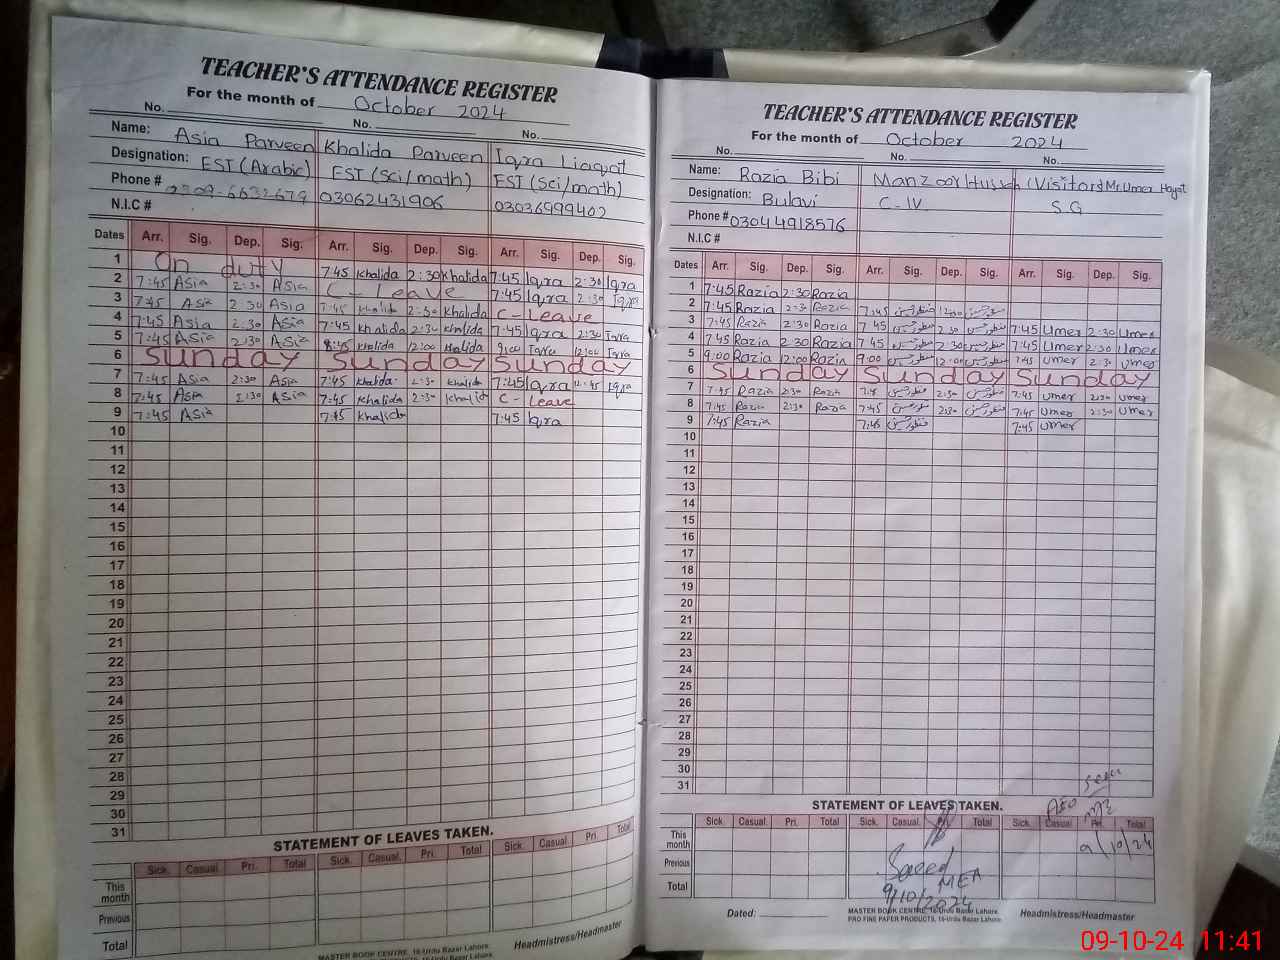 TEACHER'S ATTENDANCE REGISTER
For the month of October 2024
No. No. No.
Name: Asia Parveen Khalida Parveen Iqra Liaqat
Designation: EST (Arabic) EST (Sci/math) EST (Sci/math)
Phone # 03062431906 03036999402
N.I.C #
Dates Arr. Sig. Dep. Sig. Arr. Sig. Dep. Sig. Arr. Sig. Dep. Sig.
1 On duty 7:45 Khalida 2:30 Khalida 7:45 Iqra 2:30 Iqra
2 7:45 Asia 2:30 Asia C-Leave 7:45 Iqra 2:30 Iqra
3 7:45 Asia 2:30 Asia 7:45 Khalida 2:30 Khalida C-Leave
4 7:45 Asia 2:30 Asia 7:45 Khalida 2:30 Khalida 7:45 Iqra 2:30 Iqra
5 7:45 Asia 2:30 Asia Khalida 12:00 Khalida 9:00 Iqra 12:00 Iqra
6 Sunday Sunday Sunday
7 7:45 Asia 2:30 Asia 7:45 Khalida 2:30 Khalida 7:45 Iqra 12:45 Iqra
8 7:45 Asia 2:30 Asia 7:45 Khalida 2:30 Khalida C-Leave
9 7:45 Asia 7:45 Khalida 7:45 Iqra
10
11
12
13
14
15
16
17
18
19
20
21
22
23
24
25
26
27
28
29
30
31
STATEMENT OF LEAVES TAKEN.
Sick. Casual. Pri. Total Sick. Casual. Pri. Total Sick. Casual. Pri. Total
This month
Previous
Total
MASTER BOOK CENTRE, 16-Urdu Bazar Lahore.
Headmistress/Headmaster
TEACHER'S ATTENDANCE REGISTER
For the month of October 2024
No. No. No.
Name: Razia Bibi Manzoor Hussain (Visitor) Mr. Umer Hayat
Designation: Bulavi C-IV S.G
Phone # 03044918576
N.I.C #
Dates Arr. Sig. Dep. Sig. Arr. Sig. Dep. Sig. Arr. Sig. Dep. Sig.
1 7:45 Razia 2:30 Razia
2 7:45 Razia 2:30 Razia 7:45 منظور حسین 12:00 منظور حسین
3 7:45 Razia 2:30 Razia 7:45 منظور حسین 2:30 منظور حسین 7:45 Umer 2:30 Umer
4 7:45 Razia 2:30 Razia 7:45 منظور حسین 2:30 منظور حسین 7:45 Umer 2:30 Umer
5 9:00 Razia 12:00 Razia 9:00 منظور حسین 12:00 منظور حسین 7:45 Umer 2:30 Umer
6 Sunday Sunday Sunday
7 7:45 Razia 2:30 Razia 7:45 منظور حسین 2:30 منظور حسین 7:45 Umer 2:30 Umer
8 7:45 Razia 2:30 Razia 7:45 منظور حسین 2:30 منظور حسین 7:45 Umer 2:30 Umer
9 7:45 Razia 7:45 منظور حسین 7:45 Umer
10
11
12
13
14
15
16
17
18
19
20
21
22
23
24
25
26
27
28
29
30
31
STATEMENT OF LEAVES TAKEN.
AEO
Sick. Casual. Pri. Total Sick. Casual. Pri. Total Sick. Casual Pri. Total
This month 9/10/24
Previous
Total
Saeed
MEA
9/10/2024
Dated:
MASTER BOOK CENTRE, 16-Urdu Bazar Lahore.
PRO FINE PAPER PRODUCTS, 16-Urdu Bazar Lahore.
Headmistress/Headmaster
09-10-24 11:41